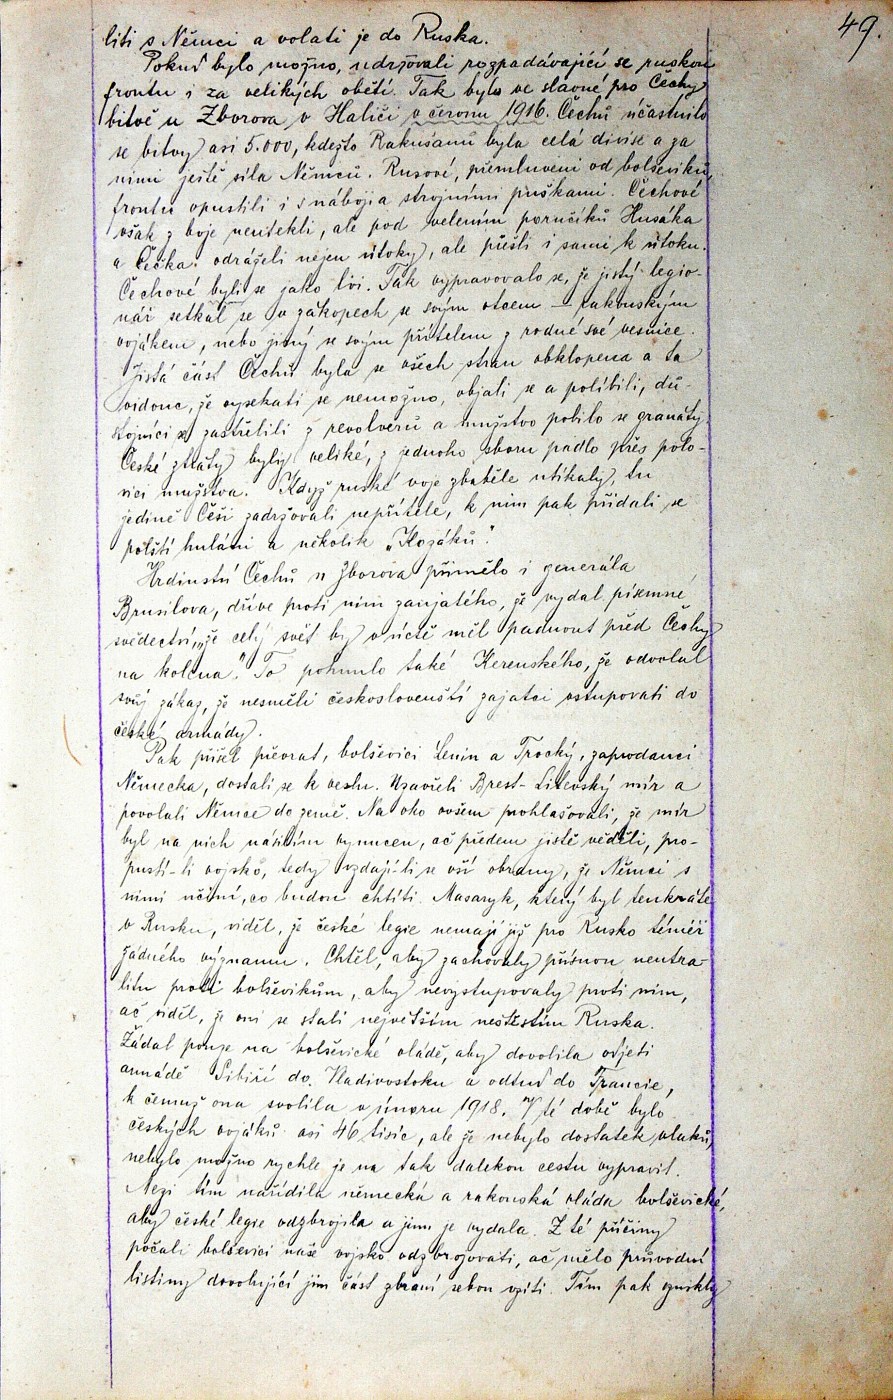 49.
liti s Němci a volati je do Ruska.
Pokud bylo možno, udržovali rozpadávající se ruskou
frontu i za velikých obětí. Tak bylo ve slavné pro Čechy
bitvě u Zborova v Haliči v červnu 1916. Čechů účastnilo
se bitvy asi 5.000, kdežto Rakušanů byla celá divise a za
nimi ještě síla Němců. Rusové, přemluveni od bolševiků,
frontu opustili i s náboji a strojními puškami. Čechové
však z boje neutekli, ale pod velením poručíků Husáka
a Čečka odráželi nejen útoky, ale přešli i sami k útoku.
Čechové byli se jako lvi. Tak vypravovalo se, že jistý legio-
nář setkal se v zákopech se svým otcem – rakouským
vojákem, nebo jiný se svým přítelem z rodné své vesnice.
Jistá část Čechů byla se všech stran obklopena a ta
vidouc, že vysekati se nemožno, objali se a políbili, dů-
stojníci se zastřelili z revolverů a mužstvo pobilo se granáty.
České ztráty byly veliké, z jednoho sboru padlo přes polo-
vici mužstva. Když ruské voje zbaběle utíkaly, tu
jedině Češi zadržovali nepřítele, k nim pak přidali se
polští huláni a několik „Kozáků".
Hrdinství Čechů u Zborova přimělo i generála
Brusilova, dříve proti nim zaujatého, že vydal písemné
svědectví, „že celý svět by v úctě měl padnout před Čechy
na kolena". To pohnulo také Kerenského, že odvolal
svůj zákaz, že nesměli českoslovenští zajatci vstupovati do
české armády.
Pak přišel převrat, bolševici Lenin a Trocký, zaprodanci
Německa, dostali se k veslu. Uzavřeli Brest-Litevský mír a
povolali Němce do země. Na oko ovšem prohlašovali, že mír
byl na nich násilím vynucen, ač předem jistě věděli, pro-
pustí-li vojsko, tedy vzdají-li se vší obrany, že Němci s
nimi učiní, co budou chtíti. Masaryk, který byl tenkráte
v Rusku, viděl, že české legie nemají již pro Rusko téměř
žádného významu. Chtěl, aby zachovaly přísnou neutra-
litu proti bolševikům, aby nevystupovaly proti nim,
ač viděl, že oni se stali největším neštěstím Ruska.
Žádal pouze na bolševické vládě, aby dovolila odjeti
armádě Sibiří do Vladivostoku a odtud do Francie,
k čemuž ona svolila v únoru 1918. V té době bylo
českých vojáků asi 46 tisíc, ale že nebylo dostatek vlaků,
nebylo možno rychle je na tak dalekou cestu vypravit.
Mezi tím nařídila německá a rakouská vláda bolševické,
aby české legie odzbrojila a jim je vydala. Z té příčiny
počali bolševici naše vojsko odzbrojovati, ač mělo průvodní
listiny dovolující jim část zbraní sebou vzíti. Tím pak vznikly